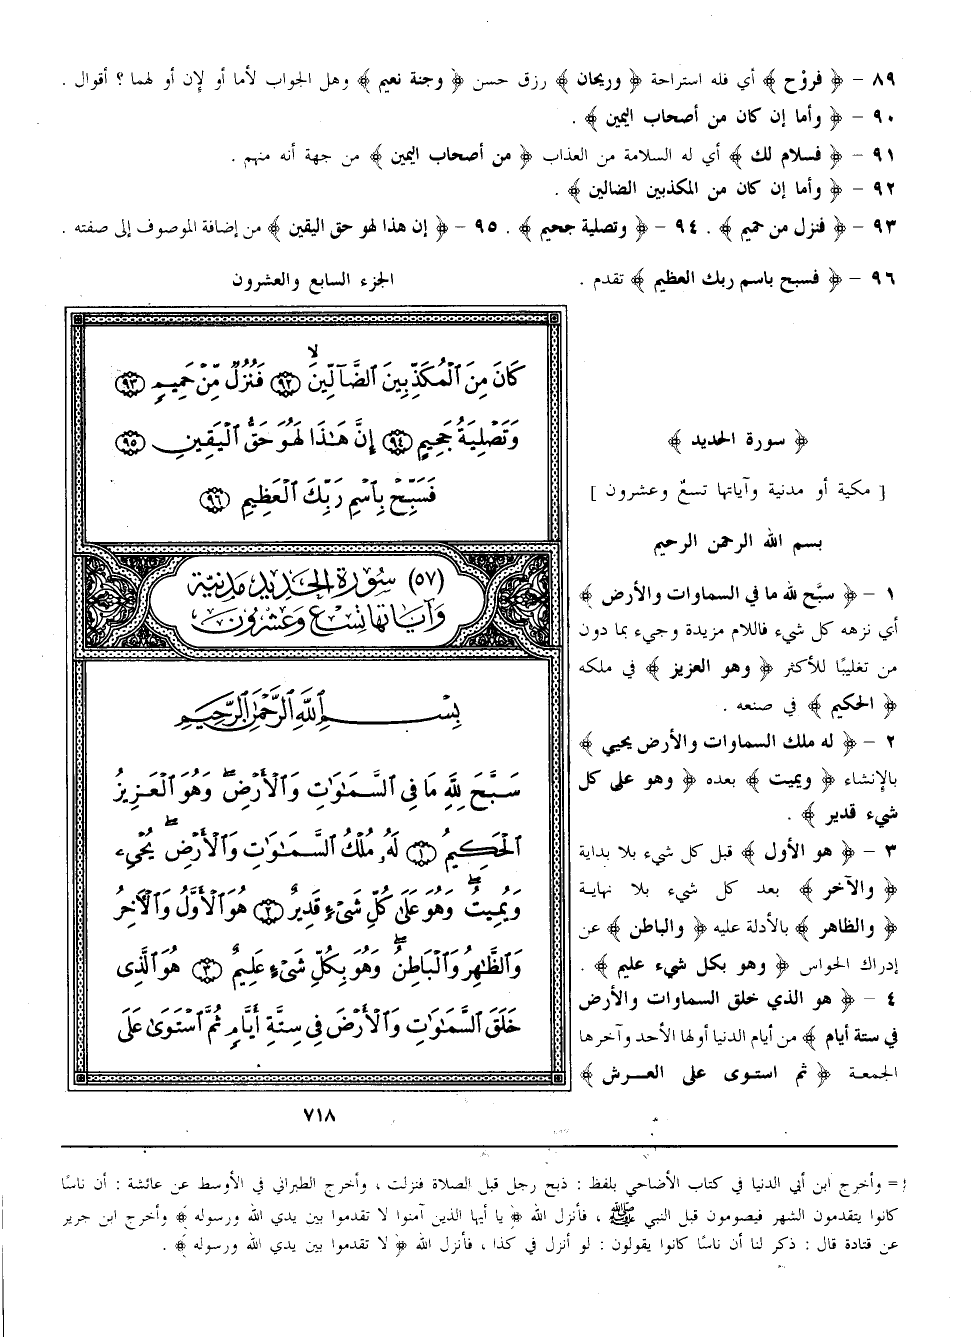 ٨٩ – ﴿ فروْح ﴾ أي فله استراحة ﴿ وريحان ﴾ رزق حسن ﴿ وجنة نعيم ﴾ وهل الجواب لأما أو لإن أو لهما ؟ أقوال .
٩٠ – ﴿ وأما إن كان من أصحاب اليمين ﴾ .
٩١ – ﴿ فسلام لك ﴾ أي له السلامة من العذاب ﴿ من أصحاب اليمين ﴾ من جهة أنه منهم .
٩٢ – ﴿ وأما إن كان من المكذبين الضالين ﴾ .
٩٣ – ﴿ فنزل من حميم ﴾ . ٩٤ – ﴿ وتصلية جحيم ﴾ . ٩٥ – ﴿ إن هذا لهو حق اليقين ﴾ من إضافة الموصوف إلى صفته .
٩٦ – ﴿ فسبح باسم ربك العظيم ﴾ تقدم .
الجزء السابع والعشرون
كَانَ مِنَ ٱلْمُكَذِّبِينَ ٱلضَّآلِّينَ ۙ ٩٢ فَنُزُلٌ مِّنْ حَمِيمٍ ٩٣
وَتَصْلِيَةُ جَحِيمٍ ٩٤ إِنَّ هَٰذَا لَهُوَ حَقُّ ٱلْيَقِينِ ٩٥
فَسَبِّحْ بِٱسْمِ رَبِّكَ ٱلْعَظِيمِ ٩٦
(٥٧) سُورَة الحَدِيدِ مَدنِيَّة
وَآيَاتُهَا تِسْعٌ وَعِشْرُونَ
بِسْمِ ٱللَّهِ ٱلرَّحْمَٰنِ ٱلرَّحِيمِ
سَبَّحَ لِلَّهِ مَا فِي ٱلسَّمَٰوَٰتِ وَٱلْأَرْضِ ۖ وَهُوَ ٱلْعَزِيزُ
ٱلْحَكِيمُ ١ لَهُۥ مُلْكُ ٱلسَّمَٰوَٰتِ وَٱلْأَرْضِ ۖ يُحْيِۦ
وَيُمِيتُ ۖ وَهُوَ عَلَىٰ كُلِّ شَىْءٍ قَدِيرٌ ٢ هُوَ ٱلْأَوَّلُ وَٱلْآخِرُ
وَٱلظَّٰهِرُ وَٱلْبَاطِنُ ۖ وَهُوَ بِكُلِّ شَىْءٍ عَلِيمٌ ٣ هُوَ ٱلَّذِى
خَلَقَ ٱلسَّمَٰوَٰتِ وَٱلْأَرْضَ فِى سِتَّةِ أَيَّامٍ ثُمَّ ٱسْتَوَىٰ عَلَى
﴿ سورة الحديد ﴾
[ مكية أو مدنية وآياتها تسعٌ وعشرون ]
بسم الله الرحمن الرحيم
١ – ﴿ سبَّح لله ما في السماوات والأرض ﴾
أي نزهه كل شيء فاللام مزيدة وجيء بما دون
من تغليبًا للأكثر ﴿ وهو العزيز ﴾ في ملكه
﴿ الحكيم ﴾ في صنعه .
٢ – ﴿ له ملك السماوات والأرض يحيي ﴾
بالإنشاء ﴿ ويميت ﴾ بعده ﴿ وهو على كل
شيء قدير ﴾ .
٣ – ﴿ هو الأول ﴾ قبل كل شيء بلا بداية
﴿ والآخر ﴾ بعد كل شيء بلا نهاية
﴿ والظاهر ﴾ بالأدلة عليه ﴿ والباطن ﴾ عن
إدراك الحواس ﴿ وهو بكل شيء عليم ﴾ .
٤ – ﴿ هو الذي خلق السماوات والأرض
في ستة أيام ﴾ من أيام الدنيا أولها الأحد وآخرها
الجمعة ﴿ ثم استوى على العرش ﴾
٧١٨
= وأخرج ابن أبي الدنيا في كتاب الأضاحي بلفظ : ذبح رجل قبل الصلاة فنزلت ، وأخرج الطبراني في الأوسط عن عائشة : أن ناسًا
كانوا يتقدمون الشهر فيصومون قبل النبي ﷺ ، فأنزل الله ﴿ يا أيها الذين آمنوا لا تقدموا بين يدي الله ورسوله ﴾ وأخرج ابن جرير
عن قتادة قال : ذكر لنا أن ناسًا كانوا يقولون : لو أنزل في كذا ، فأنزل الله ﴿ لا تقدموا بين يدي الله ورسوله ﴾ .